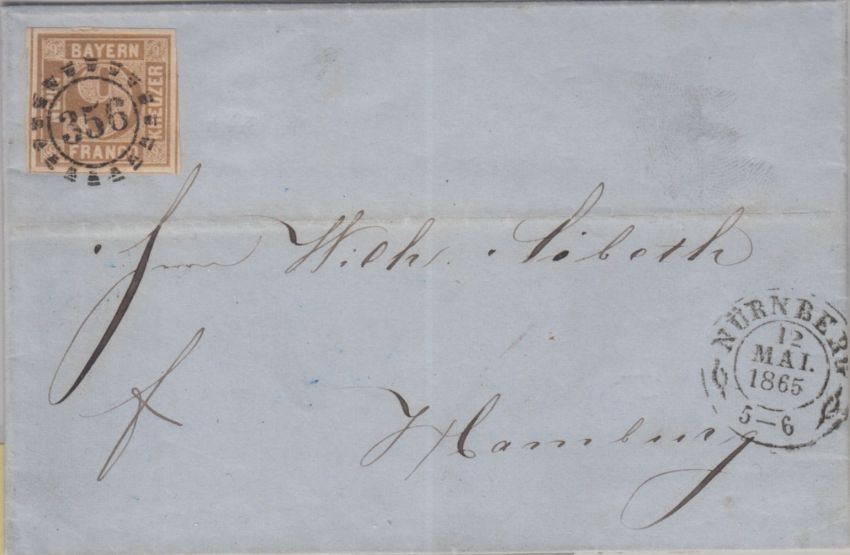 BAYERN
9
KREUZER
FRANCO
356
Herrn Wilh. Siboth
f
Hamburg
NÜRNBERG
12
MAI.
1865
5-6